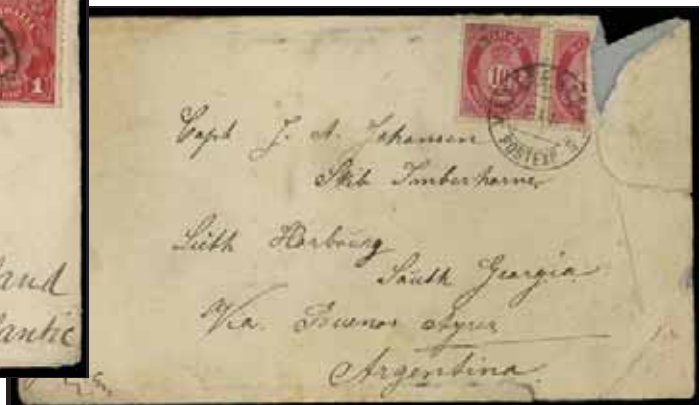 1
and
antic
10
POSTEXP
Capt J. A. Johansen
Skib Imberhorne
Lieth Harbourg
South Georgia
Via. Buenos Ayres
Argentina